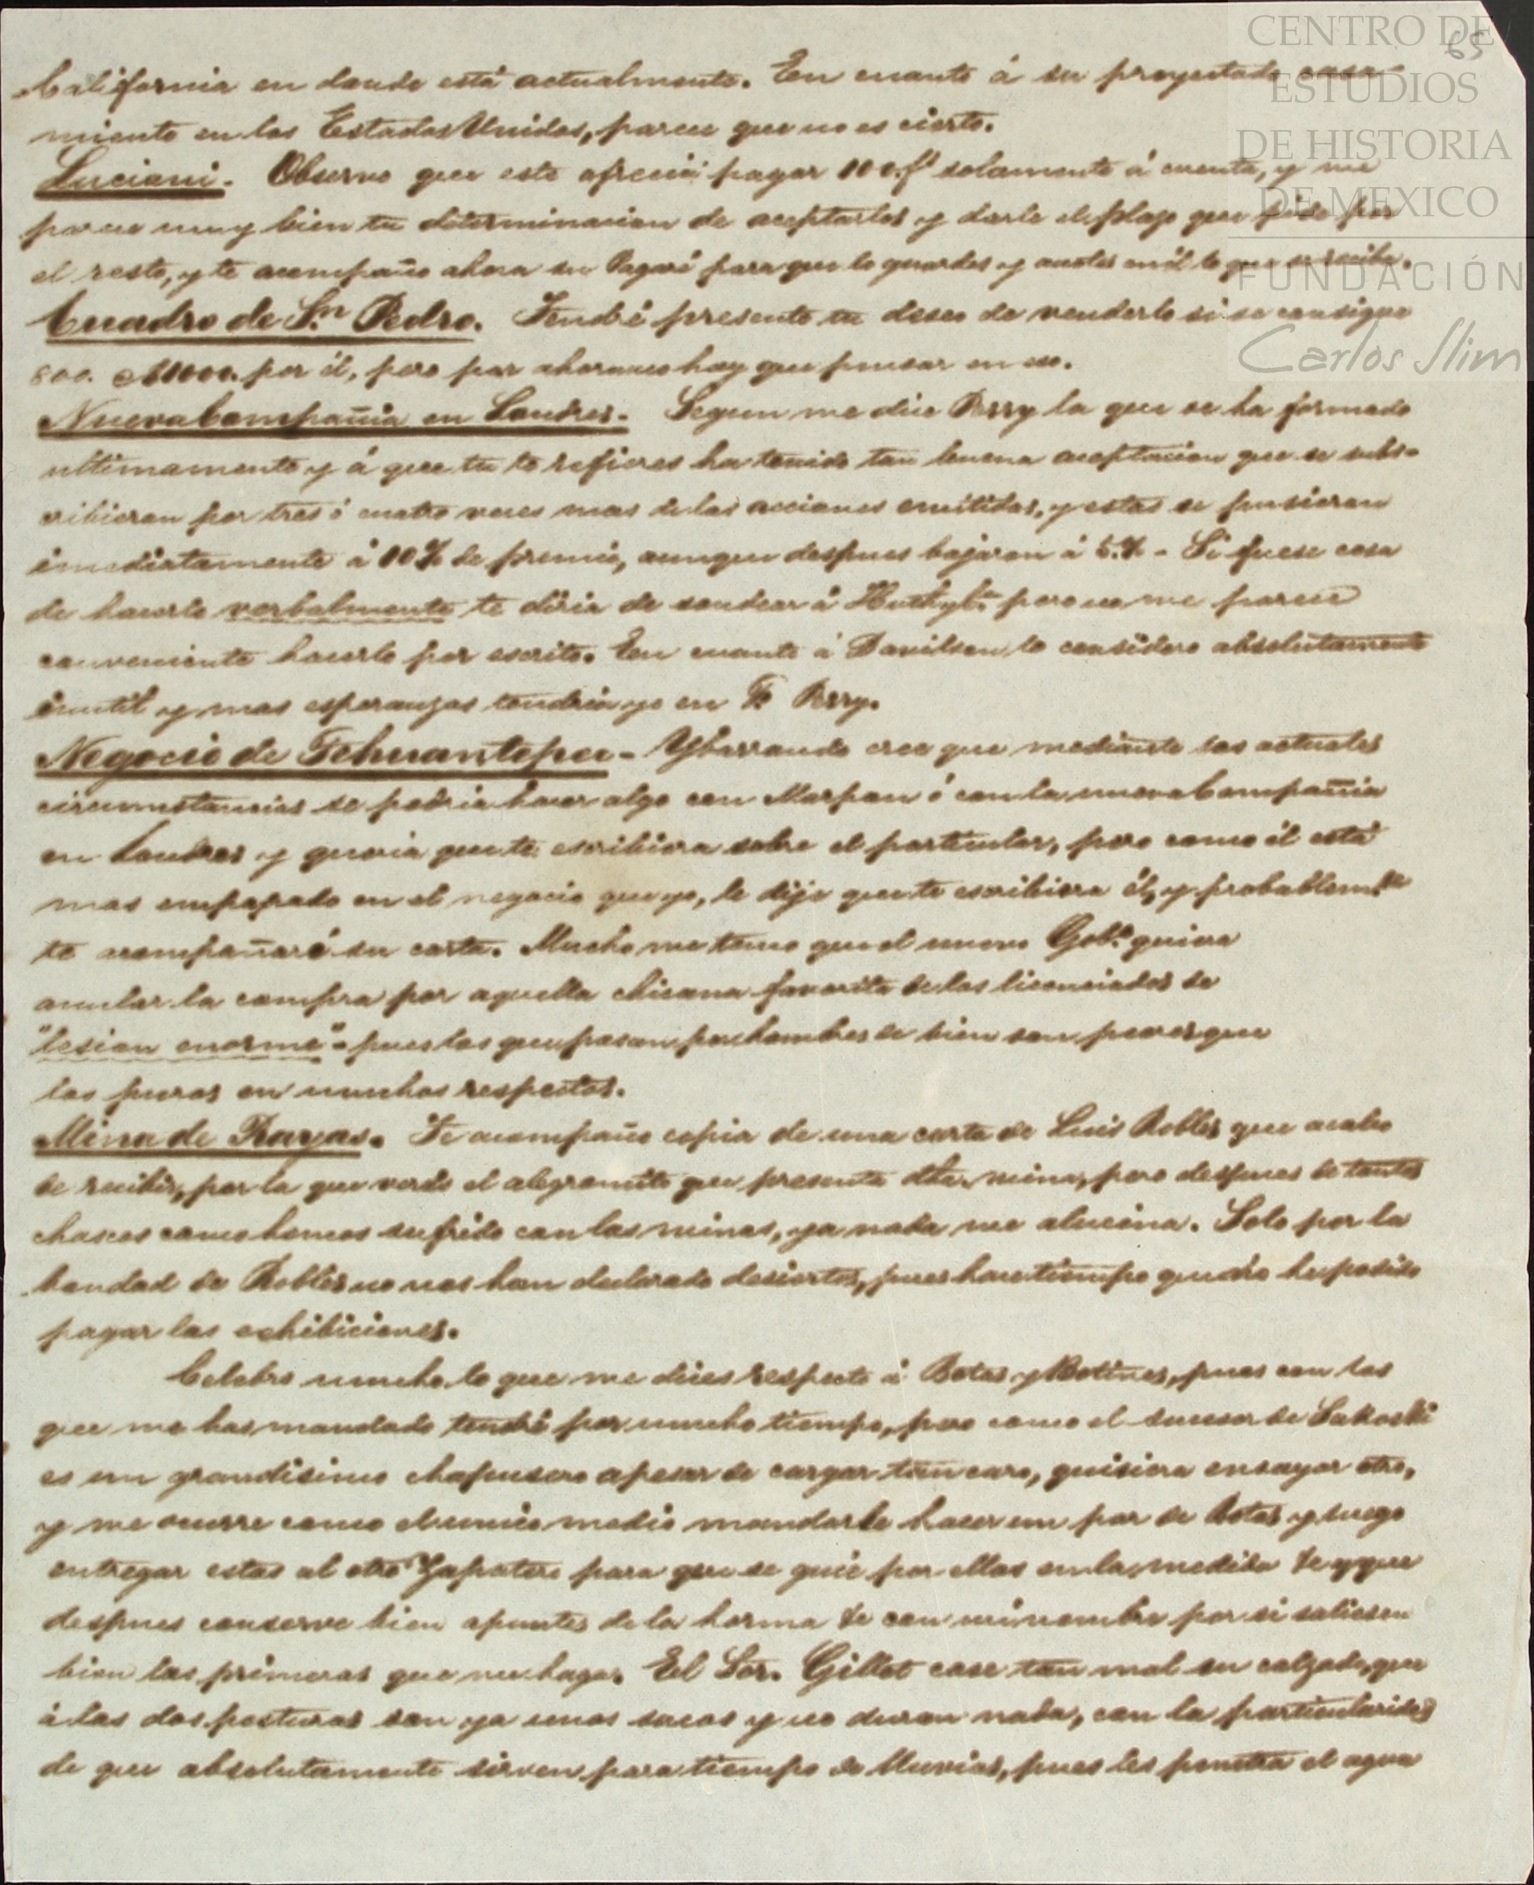 65
California en donde está actualmente. En cuanto á su proyectado casa-
miento en los Estados Unidos, parece que no es cierto.
Luciani. Observo que este ofreció pagar 100. f solamente á cuenta, y me
parece muy bien tu determinacion de aceptarlos y darle el plazo que pide por
el resto, y te acompaño ahora su Pagaré para que lo guardes y anotes en él lo que se reciba.
Cuadro de Sn. Pedro. Tendré presente tu deseo de venderlo si se consigue
800. á $1000. por él, pero por ahora no hay que pensar en eso.
Nueva Compañia en Londres. Segun me dice Perry la que se ha formado
ultimamente y á que tu te refieres ha tenido tan buena aceptacion que se subs-
cribieron por tres ó cuatro veces mas de las acciones emitidas, y estas se pusieron
inmediatamente á 10% de premio, aunque despues bajaron á 5.% - Si fuese cosa
de hacerlo verbalmente te diria de sondear á pero no me parece
conveniente hacerlo por escrito. En cuanto á Davilson lo considero absolutamente
inutil y mas esperanzas tendria yo en Perry.
Negocio de Tehuantepec - Ybarrando cree que mediante las actuales
circumstancias se podria hacer algo con Morpan ó con la nueva Compañia
en Londres y queria que te escribiera sobre el particular, pero como él está
mas empapado en el negocio que yo, le dije que te escribiera él, y probablemte
te acompañaré su carta. Mucho me temo que el nuevo Gobo. quiera
anular la compra por aquella chicana favorita de los licenciados de
"lesion enorme" - pues los que pasan por hombres de bien son peores que
los puros en muchos respectos.
Mina de Rayas. Te acompaño copia de una carta de Luis Robles que acabo
de recibir, por la que verás el alegroncito que presenta dha. mina, pero despues de tantos
chascos como hemos sufrido con las minas, ya nada me alucina. Solo por la
bondad de Robles no nos han declarado desiertos, pues hace tiempo que no he podido
pagar las exhibiciones.
Celebro mucho lo que me dices respecto á Botas y Botines, pues con los
que me has mandado tendré por mucho tiempo, pero como el sucesor de Sakoski
es un grandisimo chapucero apesar de cargar tan caro, quisiera ensayar otro,
y me ocurre como el unico medio mandarle hacer un par de Botas y luego
entregar estas al otro Zapatero para que se guie por ellas en la medida &c y que
despues conserve bien apuntes de la horma &c con mi nombre por si saliesen
bien las primeras que me haga. El Sor. Gillot cose tan mal su calzado, que
á las dos posturas son ya unos sacos y no duran nada, con la particularidad
de que absolutamente sirven para tiempo de lluvias, pues les penetra el agua
CENTRO DE
ESTUDIOS
DE HISTORIA
DE MEXICO
FUNDACIÓN
Carlos Slim